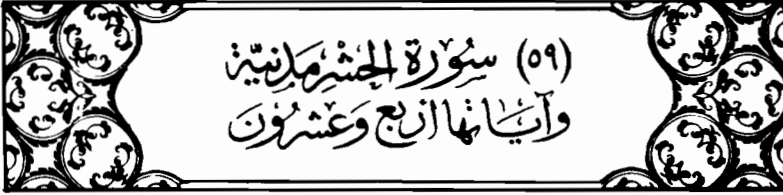 (٥٩) سُوْرَة الحَشْرِ مَدنِيَّة
وَآيَاتها اربَع وَعشرُونَ